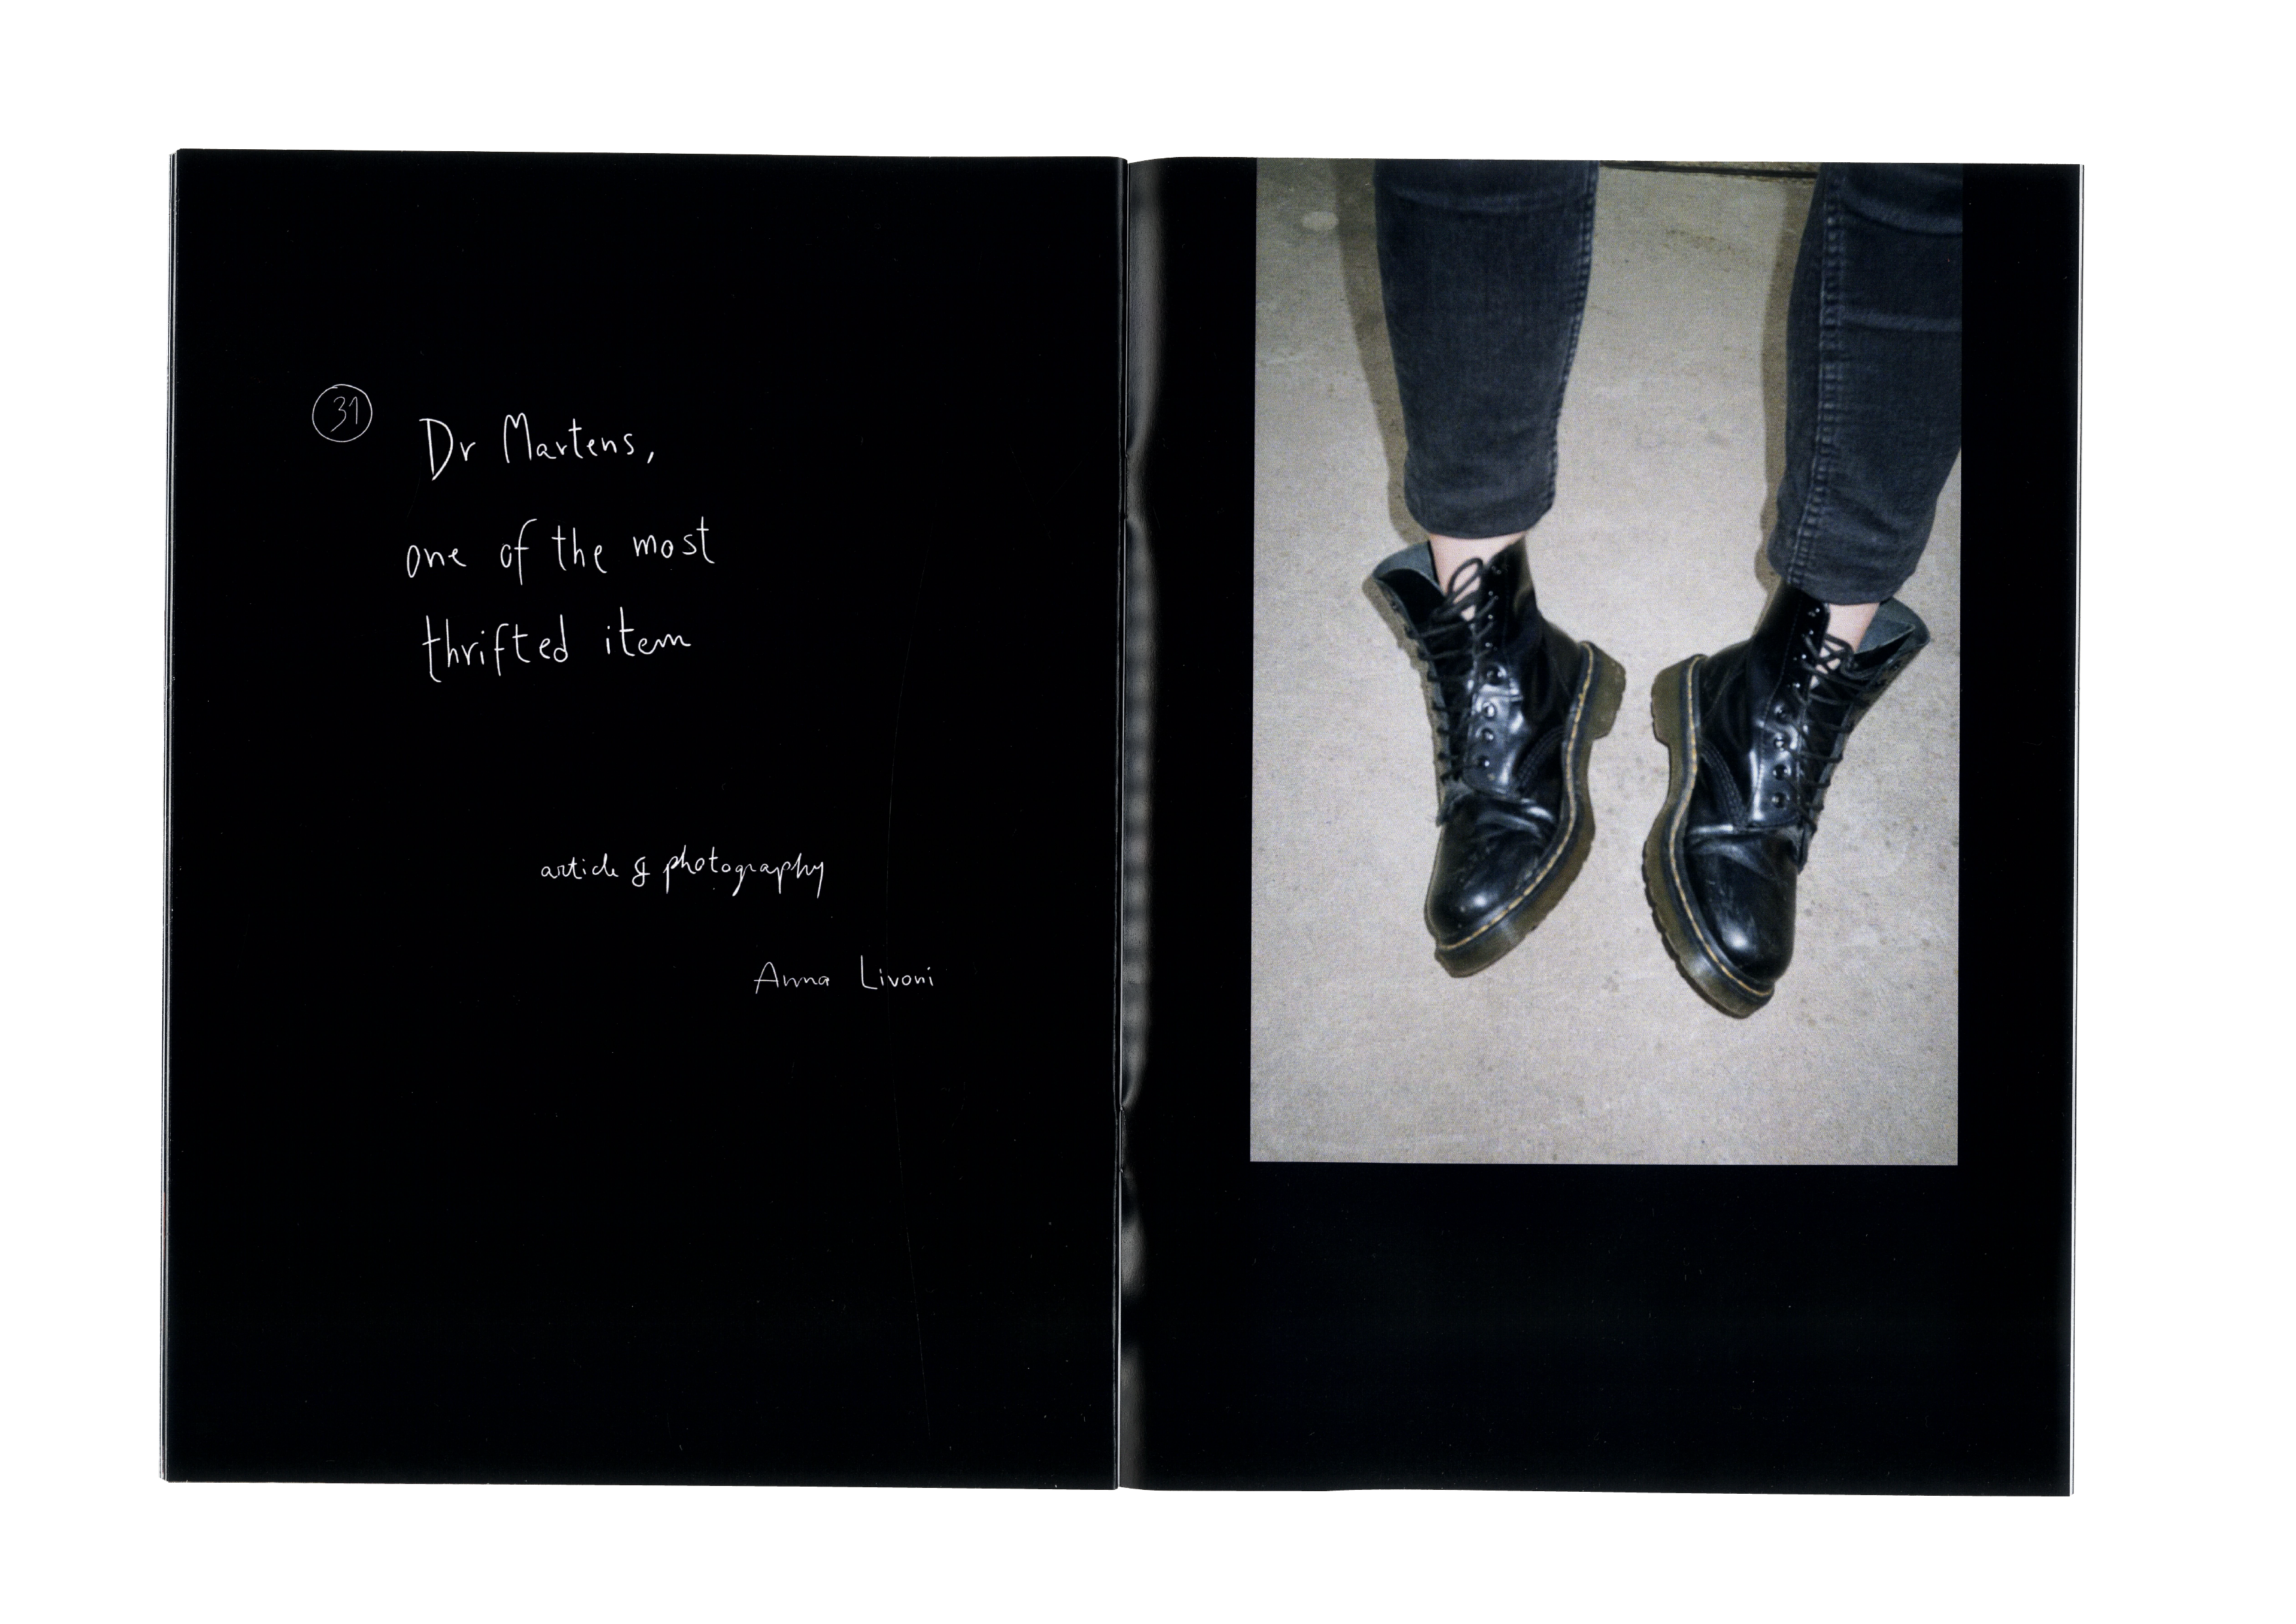 31
Dr Martens,
one of the most
thrifted item
article & photography
Anna Livoni